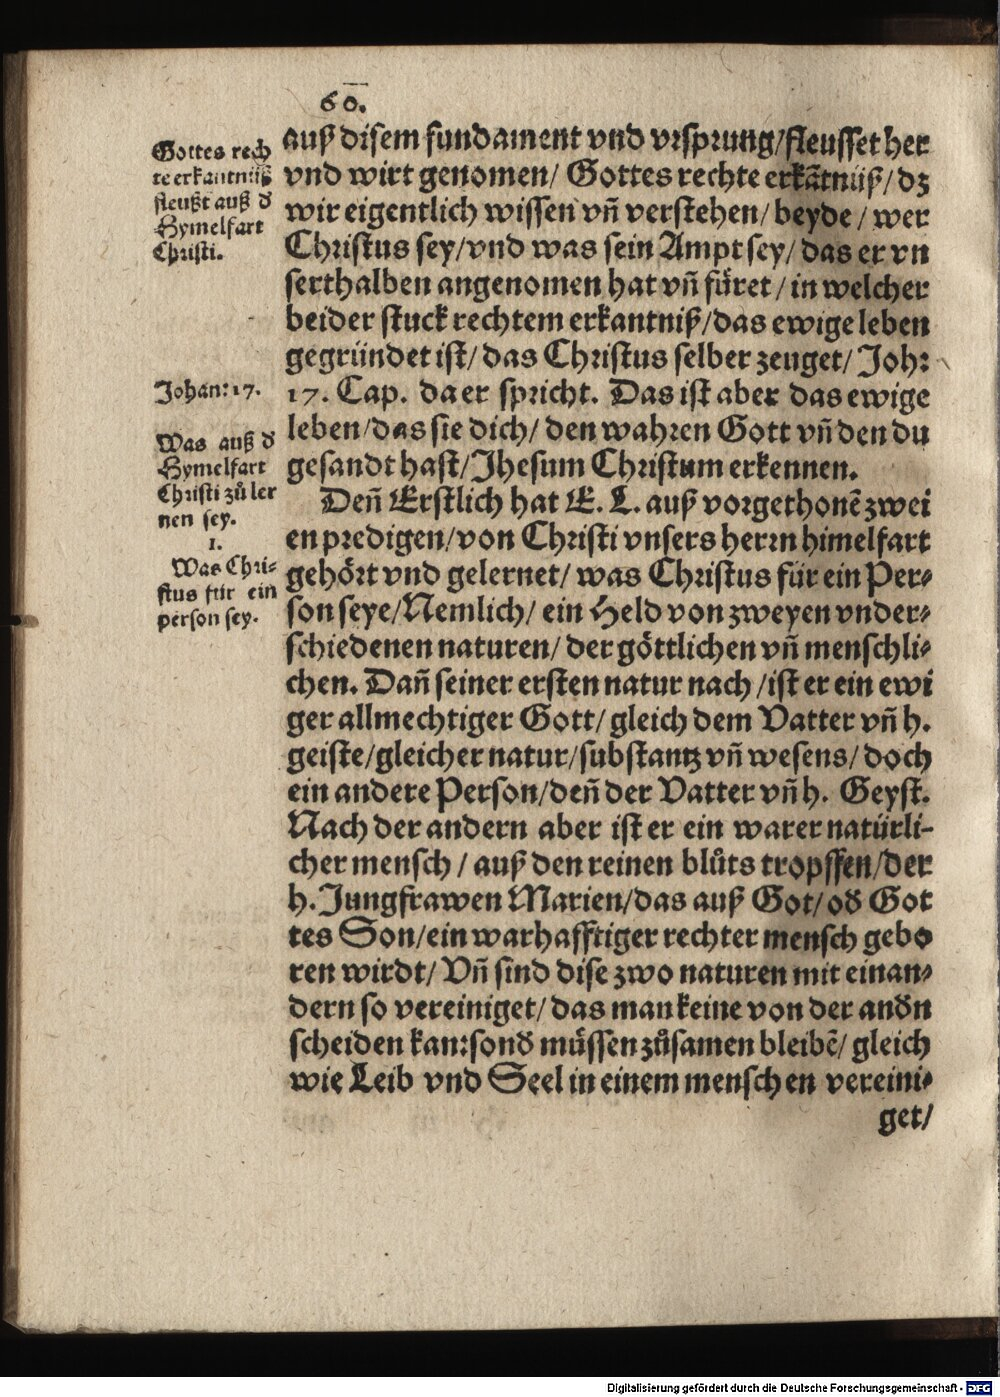 60.
Gottes rech
te erkantnüß
fleußt auß đ
Hymelfart
Christi.
auß disem fundament vnd vrsprung/fleusset her
vnd wirt genomen/ Gottes rechte erkãtnüß/ dz
wir eigentlich wissen vñ verstehen/ beyde / wer
Christus sey/vnd was sein Ampt sey/ das er vn
serthalben angenomen hat vñ füret / in welcher
beider stuck rechtem erkantniß/das ewige leben
gegründet ist/ das Christus selber zeuget/ Joh:
Johan: 17.
17. Cap. da er spricht. Das ist aber das ewige
leben/das sie dich/ den wahren Gott vñ den du
gesandt hast/Jhesum Christum erkennen.
Was auß đ
Hymelfart
Christi zů ler
nen sey.
1.
Was Chri-
stus für ein
person sey.
Deñ Erstlich hat E. L. auß vorgethonẽ zwei
en predigen/von Christi vnsers herrn himelfart
gehört vnd gelernet/ was Christus für ein Per-
son seye/Nemlich/ ein Held von zweyen vnder-
schiedenen naturen/ der göttlichen vñ menschli-
chen. Dañ seiner ersten natur nach /ist er ein ewi
ger allmechtiger Gott/ gleich dem Vatter vñ h.
geiste/gleicher natur/substantz vñ wesens/ doch
ein andere Person/deñ der Vatter vñ h. Geyst.
Nach der andern aber ist er ein warer natürli-
cher mensch / auß den reinen blůts tropffen/der
h. Jungfrawen Marien/das auß Got/ ođ Got
tes Son/ein warhafftiger rechter mensch gebo
ren wirdt/ Vñ sind dise zwo naturen mit einan-
dern so vereiniget/ das man keine von der anđn
scheiden kan:sonđ müssen zůsamen bleibẽ/ gleich
wie Leib vnd Seel in einem menschen vereini-
get/
Digitalisierung gefördert durch die Deutsche Forschungsgemeinschaft - DFG